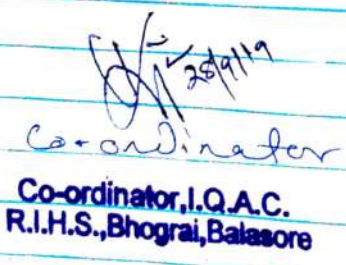 28/9/19
Co-ordinator
Co-ordinator,I.Q.A.C.
R.I.H.S.,Bhograi,Balasore